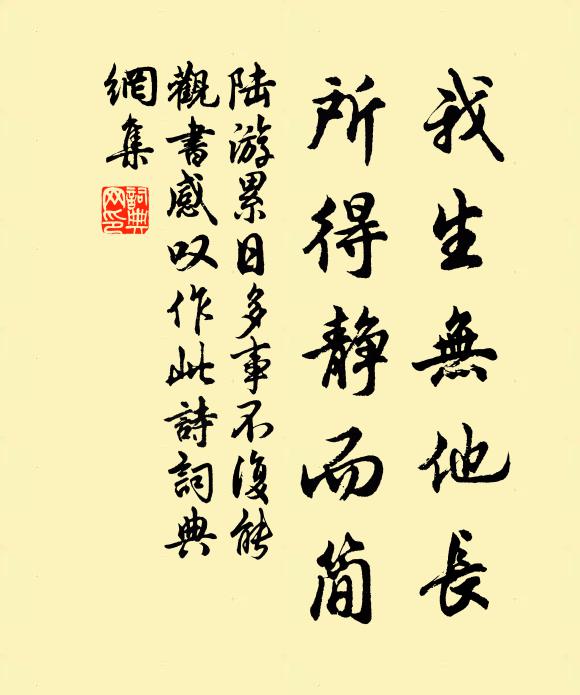 我生無他長
所得静而简
陆游累日多事不復能
觀書感叹作此詩詞典
網集
詞典
网印